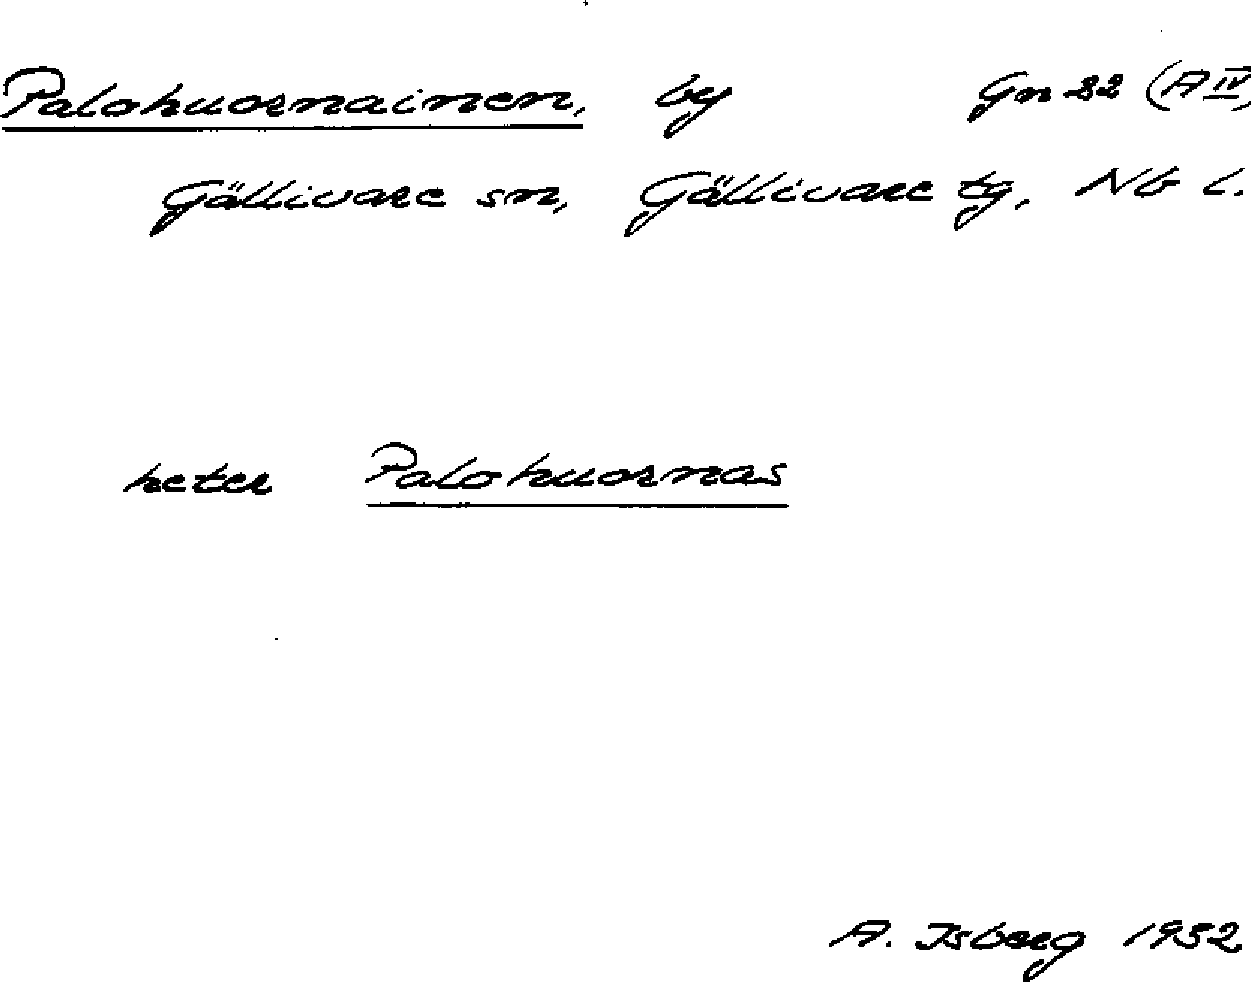 Palohuornainen, by Gn 32 (A IV)
Gällivare sn, Gällivare tg, Nb l.
heter Palohuornas
A. Isberg 1952